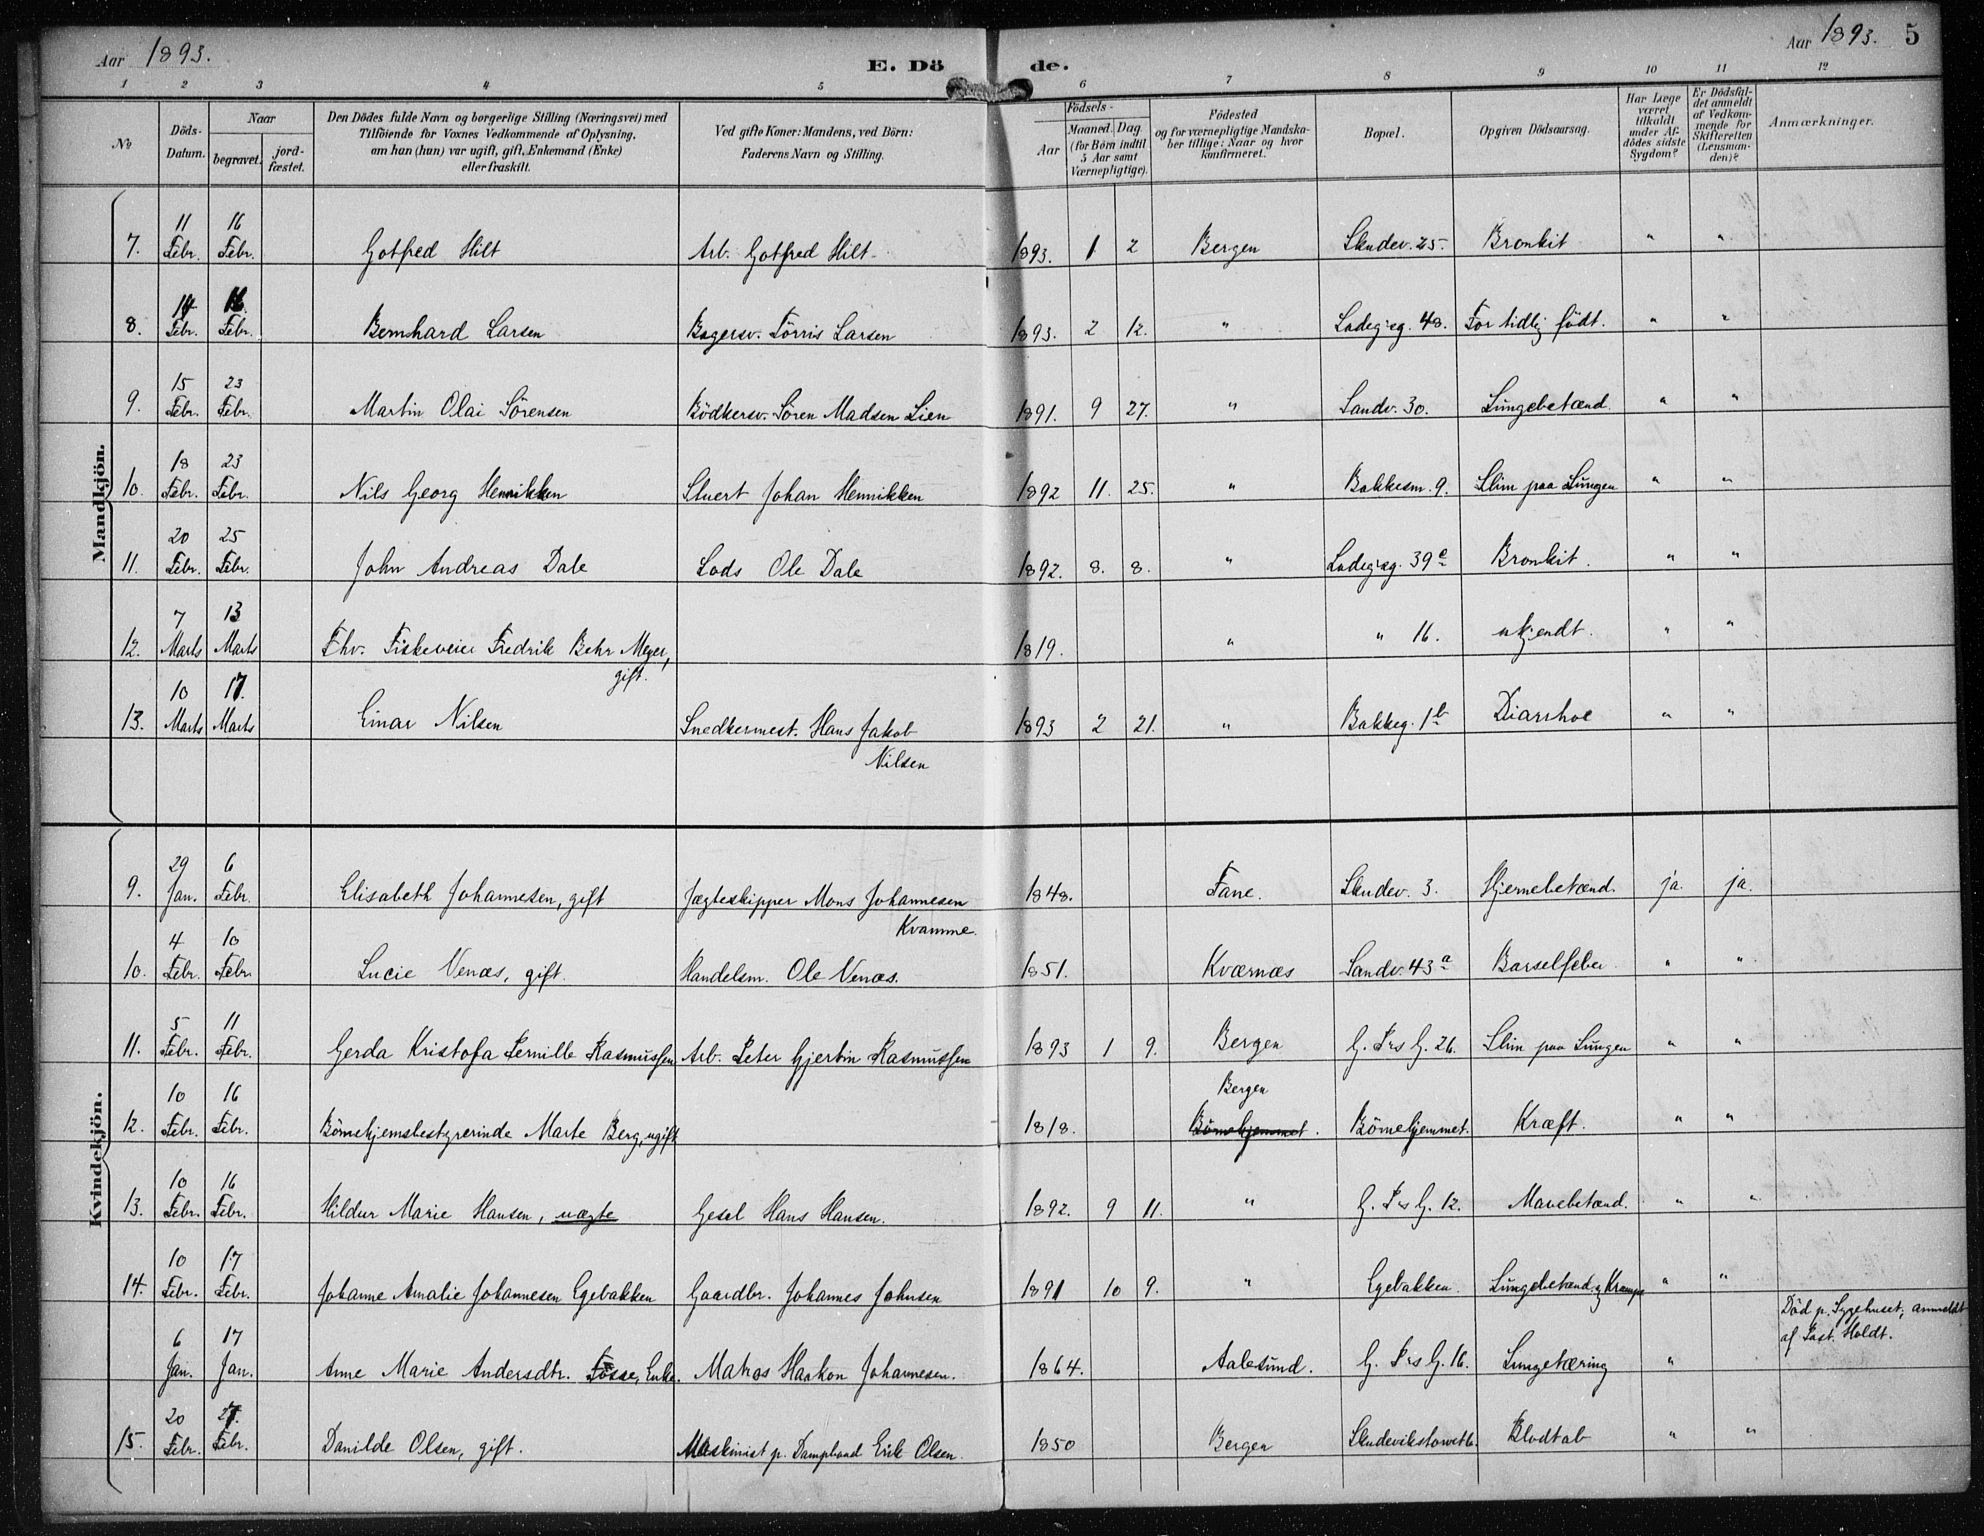 Aar 1893.
E. Döde.
Aar 1893. 5
1 2 3 4 5 6 7 8 9 10 11 12
No
Döds-Datum.
Naar
begravet.
jordfæstet.
Den Dödes fulde Navn og borgerlige Stilling (Næringsvei) med
Tilföiende for Voxnes Vedkommende af Oplysning,
om han (hun) var ugift, gift, Enkemand (Enke)
eller fraskilt.
Ved gifte Koner: Mandens, ved Börn:
Faderens Navn og Stilling.
Födsels-
Aar
Maaned. Dag
(for Börn indtil
5 Aar samt
Værnepligtige).
Födested
og for værnepligtige Mandska-
ber tillige: Naar og hvor
konfirmeret.
Bopæl.
Opgiven Dödsaarsag.
Har Læge
været
tilkaldt
under Af-
dödes sidste
Sygdom?
Er Dödsfal-
det anmeldt
af Vedkom-
mende for
Skifteretten
(Lensman-
den)?
Anmærkninger.
Mandkjön.
7. 11 Febr. 16 Febr. Gotfred Hilt Arb. Gotfred Hilt 1893. 1 2 Bergen Skudev. 25. Bronkit " "
8. 14 Febr. 16 Febr. Bernhard Larsen Bagersv. Törris Larsen 1893. 2 12. " Ladegg. 48. For tidlig födt. " "
9. 15 Febr. 23 Febr. Martin Olai Sörensen Bödkersv. Sören Madsen Lien 1891. 9 27. " Sandv. 30. Lungebetænd. " "
10. 18 Febr. 23 Febr. Nils Georg Henrikken Stuert Johan Henrikken 1892 11. 25. " Bakkesm. 9. Slim paa Lungen " "
11. 20 Febr. 25 Febr. John Andreas Dale Lods Ole Dale 1892. 8. 8. " Ladegg. 39c Bronkit. " "
12. 7 Marts 13 Marts Fhv. Fiskeveier Fredrik Behr Meyer, gift. 1819. " " 16. ukjendt. " "
13. 10 Marts 17. Marts Einar Nilsen Snedkermest. Hans Jakob Nilsen 1893 2 21. " Bakkeg. 1b Diarrhoe " "
Kvindekjön.
9. 29 Jan. 6 Febr. Elisabeth Johannesen, gift Jægteskipper Mons Johannesen Kvamme. 1848. Fane. Skudev. 3. Hjernebetænd. ja. ja.
10. 4 Febr. 10 Febr Lucie Venæs, gift. Handelsm. Ole Venæs. 1851. Kværnæs Sandv. 43a Barselfeber " "
11. 5 Febr. 11 Febr. Gerda Kristofa Pernille Rasmussen Arb. Peter Gjertin Rasmussen 1893 1 9. Bergen G. Prs G. 26. Slim paa Lungen " "
12. 10 Febr. 16 Febr. Börnehjemsbestyrerinde Marte Berg, ugift 1818. Bergen Börnehjemmet. Börnehjemmet. Kræft. " "
13. 10 Febr. 16 Febr. Hildur Marie Hansen, uægte Gesel Hans Hansen. 1892. 9 11. " G. Prs G. 12. Mavebetænd. " "
14. 10 Febr. 17 Febr. Johanne Amalie Johannesen Egebakken Gaardbr. Johannes Johnsen 1891 10 9. " Egebakken. Lungebetænd. og Krampe " "
6 Jan. 17 Jan. Anne Marie Andersdtr. Fosse, Enke. Matros Haakon Johannesen. 1864. Aalesund. G. Prs G. 16. Lungetæring " Död p. Sygehuset; anmeldt
af Past. Holdt.
15. 20 Febr. 27. Febr. Danilde Olsen, gift. Maskinist p. Dampbaad Erik Olsen. 1850 Bergen Skudevikstorvet 6. Blodtab " "